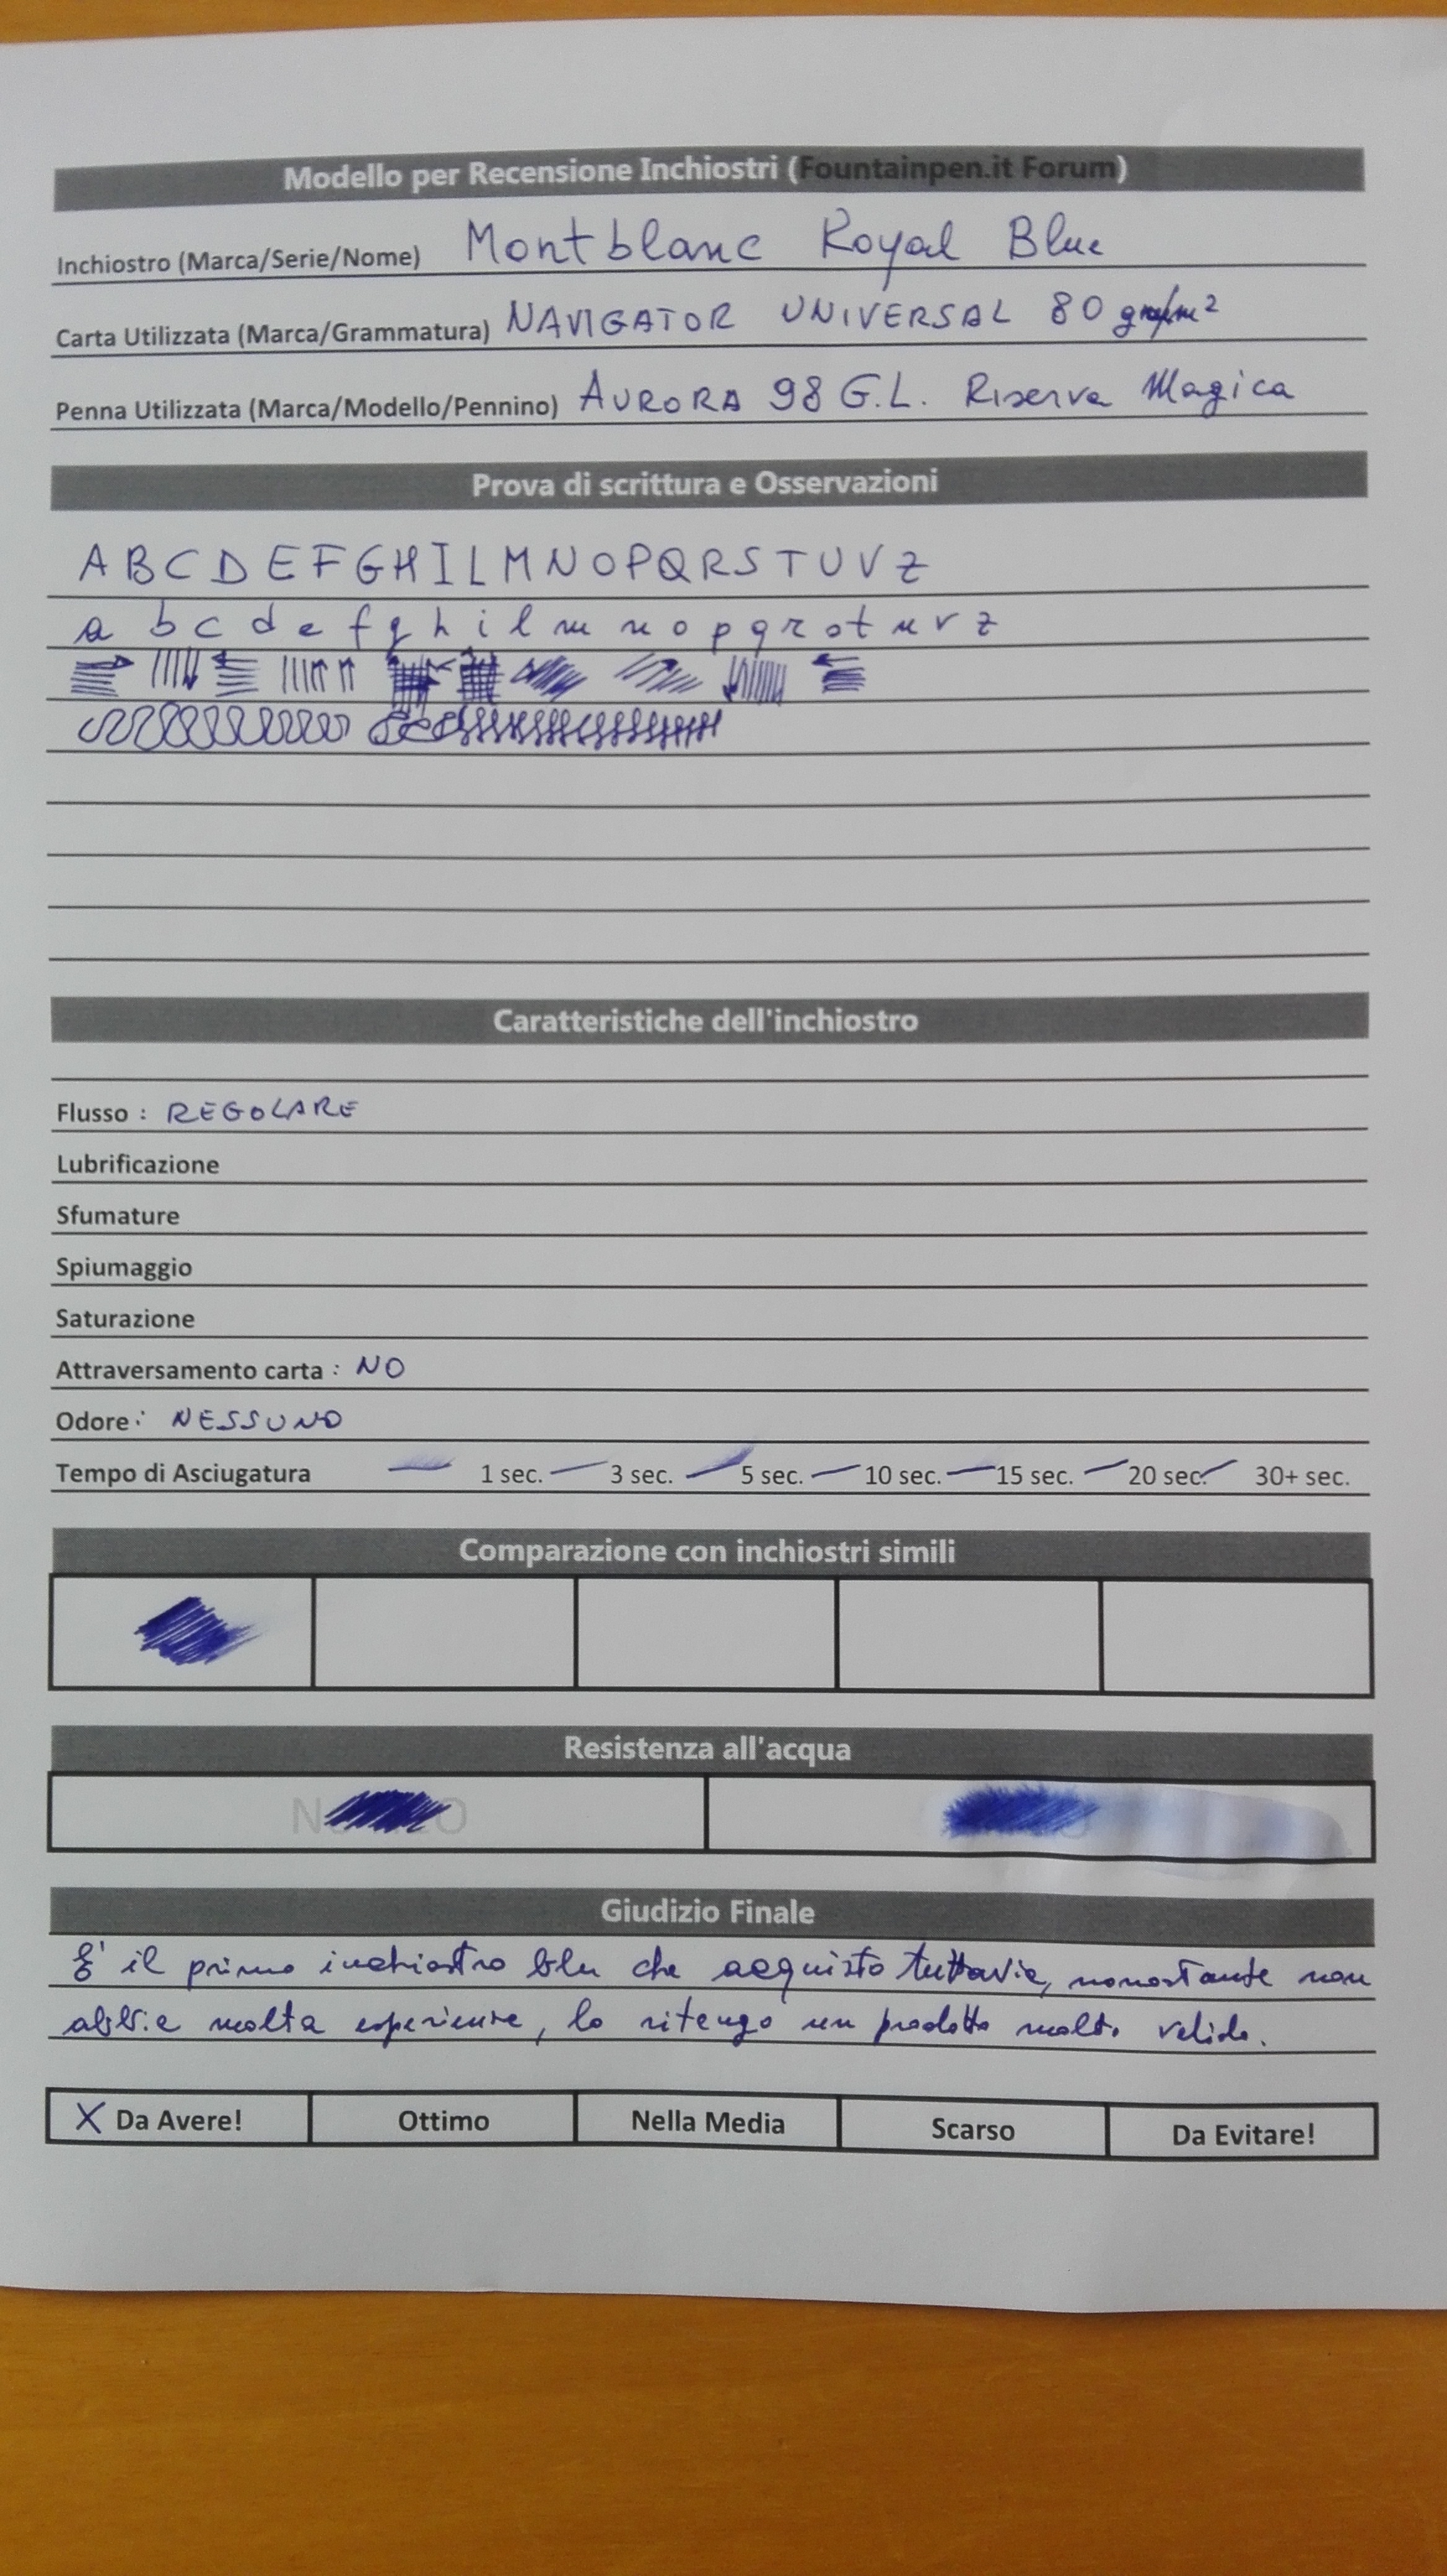 Modello per Recensione Inchiostri (Fountainpen.it Forum)
Inchiostro (Marca/Serie/Nome) Montblanc Royal Blue
Carta Utilizzata (Marca/Grammatura) NAVIGATOR UNIVERSAL 80
Penna Utilizzata (Marca/Modello/Pennino) AURORA 98 G.L. Riserva Magica
Prova di scrittura e Osservazioni
A B C D E F G H I L M N O P Q R S T U V Z
a b c d e f g h i l m n o p q r s t u v z
Caratteristiche dell'inchiostro
Flusso : REGOLARE
Lubrificazione
Sfumature
Spiumaggio
Saturazione
Attraversamento carta : NO
Odore : NESSUNO
Tempo di Asciugatura 1 sec. 3 sec. 5 sec. 10 sec. 15 sec. 20 sec. 30+ sec.
Comparazione con inchiostri simili
Resistenza all'acqua
Giudizio Finale
E' il primo inchiostro blu che acquisto tuttavia, nonostante non
abbia molta esperienza, lo ritengo un prodotto molto valido.
X Da Avere! Ottimo Nella Media Scarso Da Evitare!